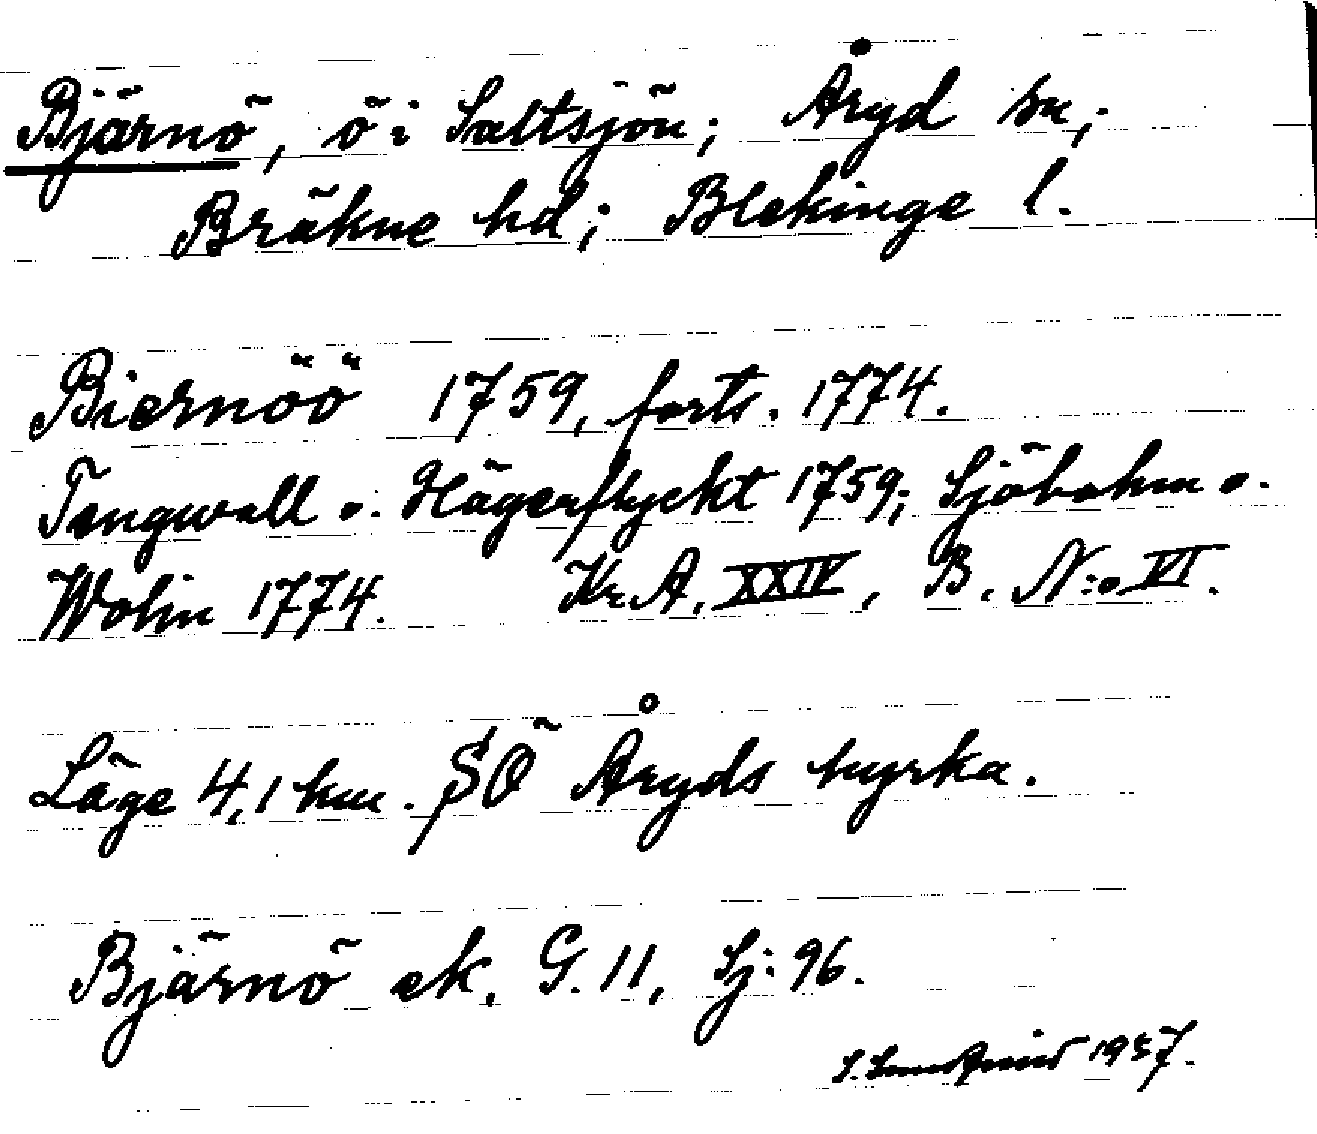 Bjärnö, ö i Saltsjön; Åryd sn,
Bräkne hd; Blekinge l.
Biernöö 1759, forts. 1774.
Tengwall o. Hägerflyckt 1759; Sjöbohm o.
Wolin 1774. Kr. A. XXIV, B. N:o VI.
Läge 4,1 km. SÖ Åryds kyrka.
Bjärnö ek. G. 11, Sj: 96.
S. 1937.